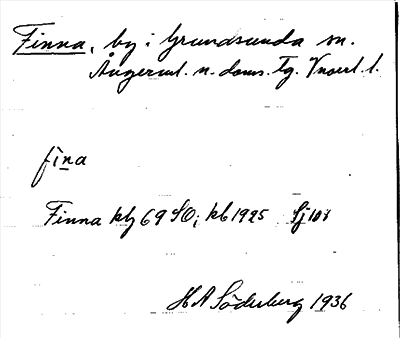 Finna, by i Grundsunda sn.
Ångerml. n. doms. Tg. Vnorrl. l.
fina
Finna kb 69 SO; kb 1925
H A Söderberg 1936